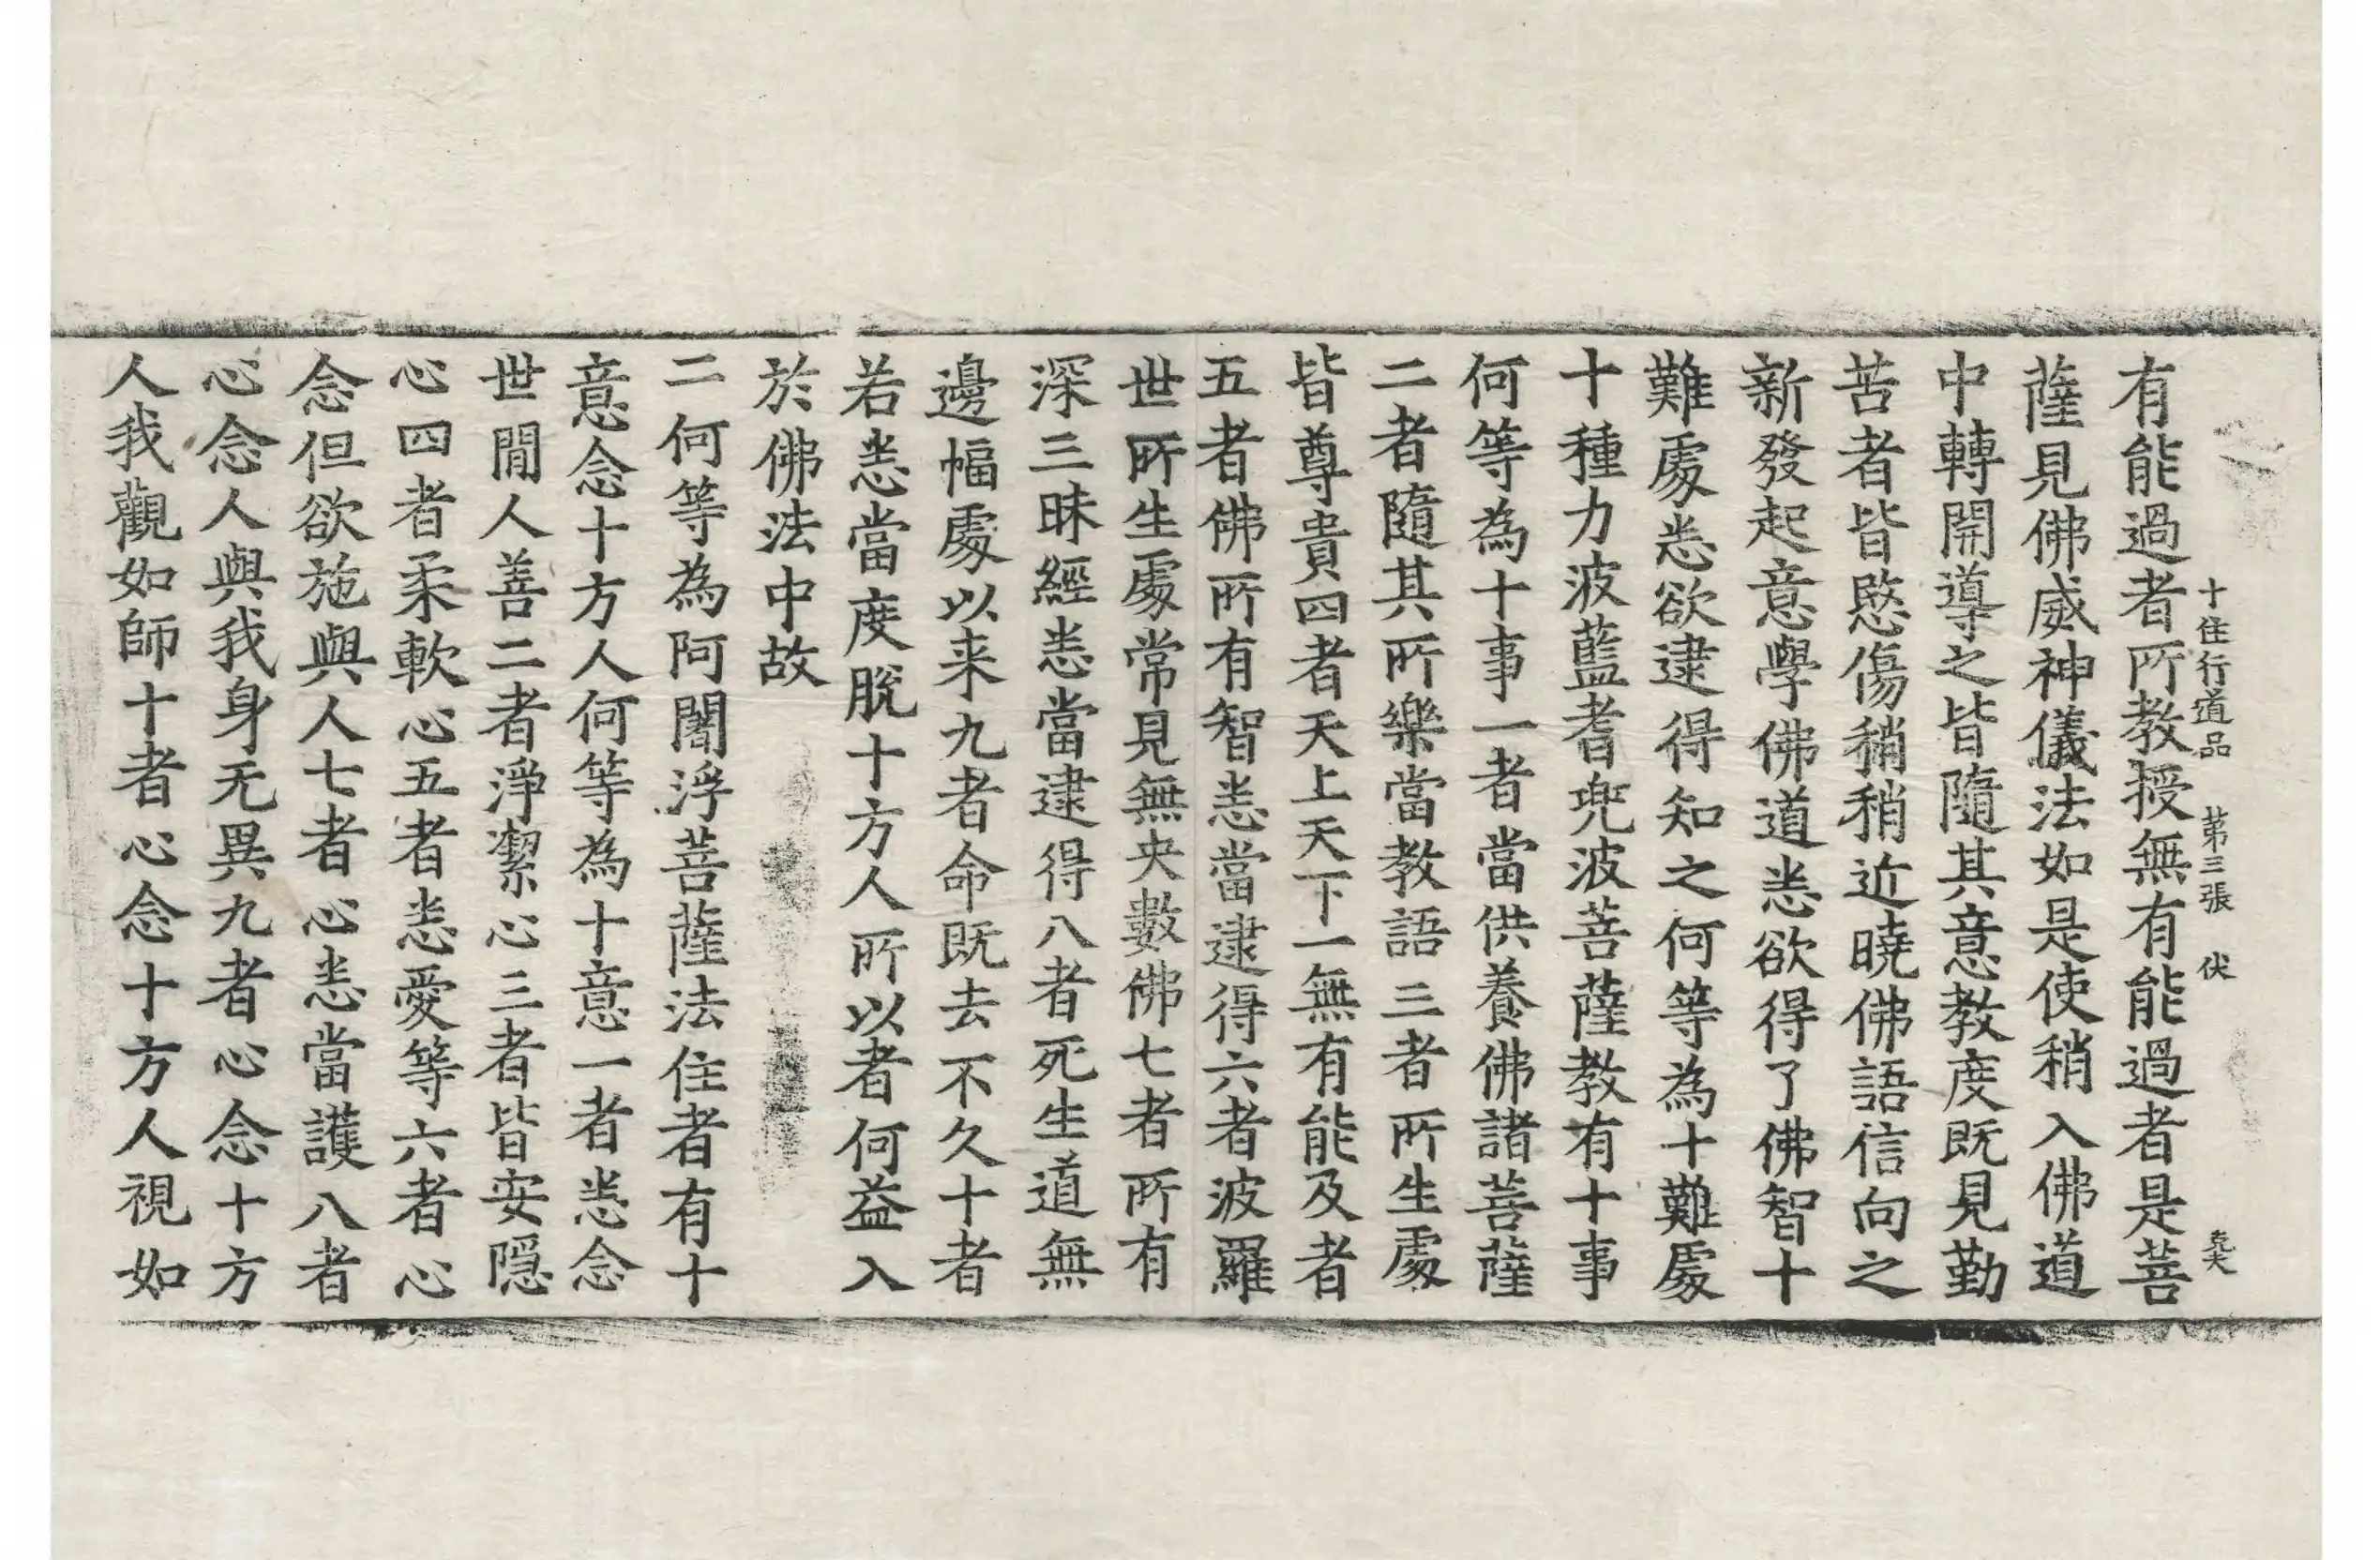 十住行道品 第三張 伏
有能過者所教授無有能過者是菩
薩見佛威神儀法如是使稍入佛道
中轉開導之皆隨其意教度既見勤
苦者皆愍傷稍稍近曉佛語信向之
新發起意學佛道悉欲得了佛智十
難處悉欲逮得知之何等為十難處
十種力波藍耆兜波菩薩教有十事
何等為十事一者當供養佛諸菩薩
二者隨其所樂當教語三者所生處
皆尊貴四者天上天下一無有能及者
五者佛所有智悉當逮得六者波羅
世所生處常見無央數佛七者所有
深三昧經悉當逮得八者死生道無
邊幅處以来九者命既去不久十者
若悉當度脫十方人所以者何益入
於佛法中故
二何等為阿闍浮菩薩法住者有十
意念十方人何等為十意一者悉念
世間人善二者淨潔心三者皆安隱
心四者柔軟心五者悉愛等六者心
念但欲施與人七者心悉當護八者
心念人與我身无異九者心念十方
人我觀如師十者心念十方人視如